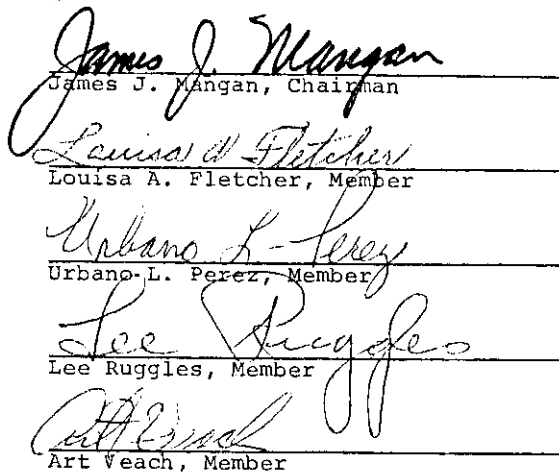 James J. Mangan
James J. Mangan, Chairman
Louisa A Fletcher
Louisa A. Fletcher, Member
Urbano L. Perez
Urbano L. Perez, Member
Lee Ruggles
Lee Ruggles, Member
Art Veach
Art Veach, Member